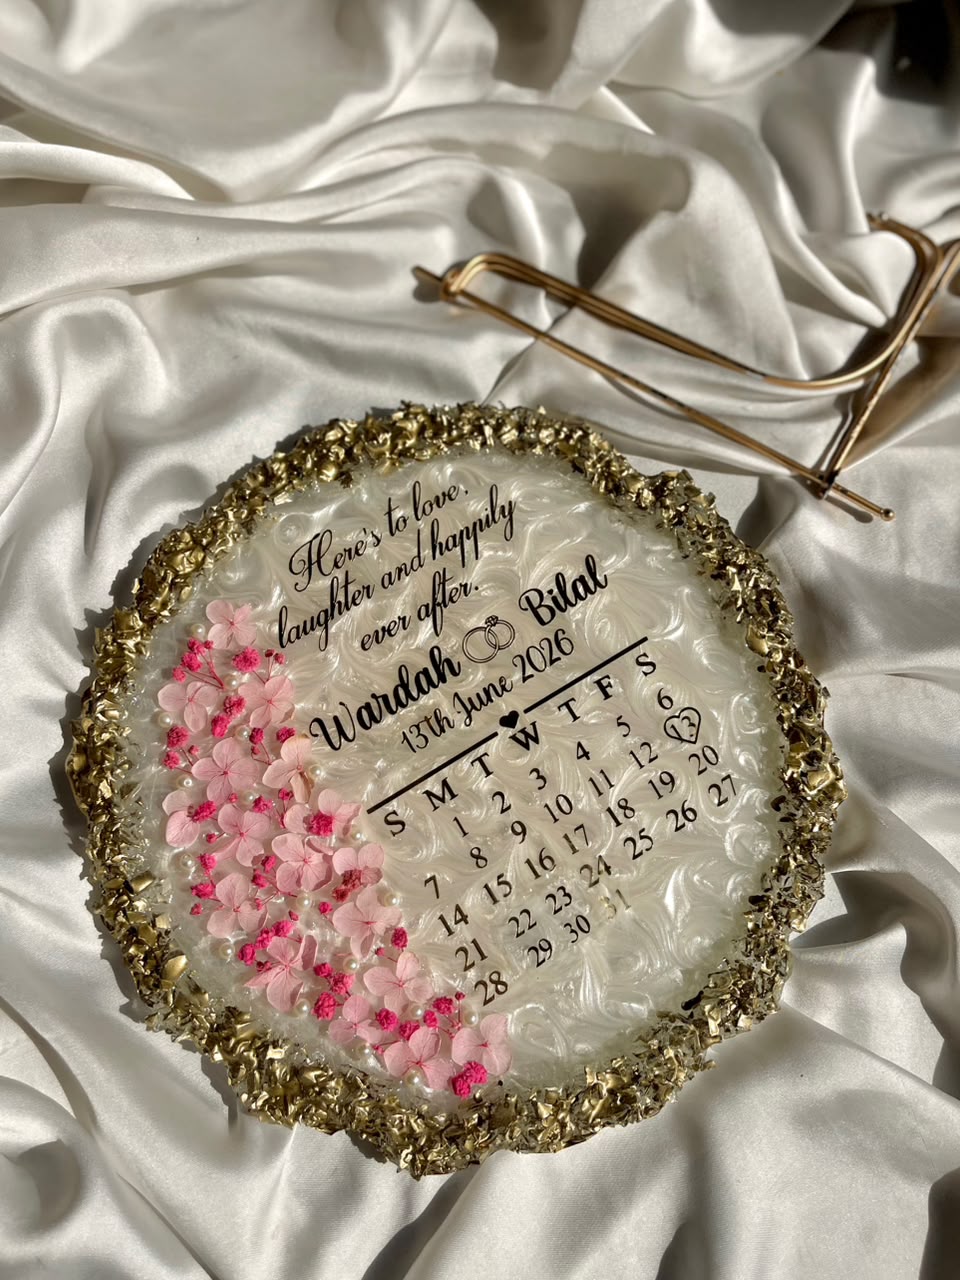 Here's to love,
laughter and happily
ever after.
Wardah Bilal
13th June 2026
S M T W T F S
1 2 3 4 5 6
7 8 9 10 11 12 13
14 15 16 17 18 19 20
21 22 23 24 25 26 27
28 29 30 31